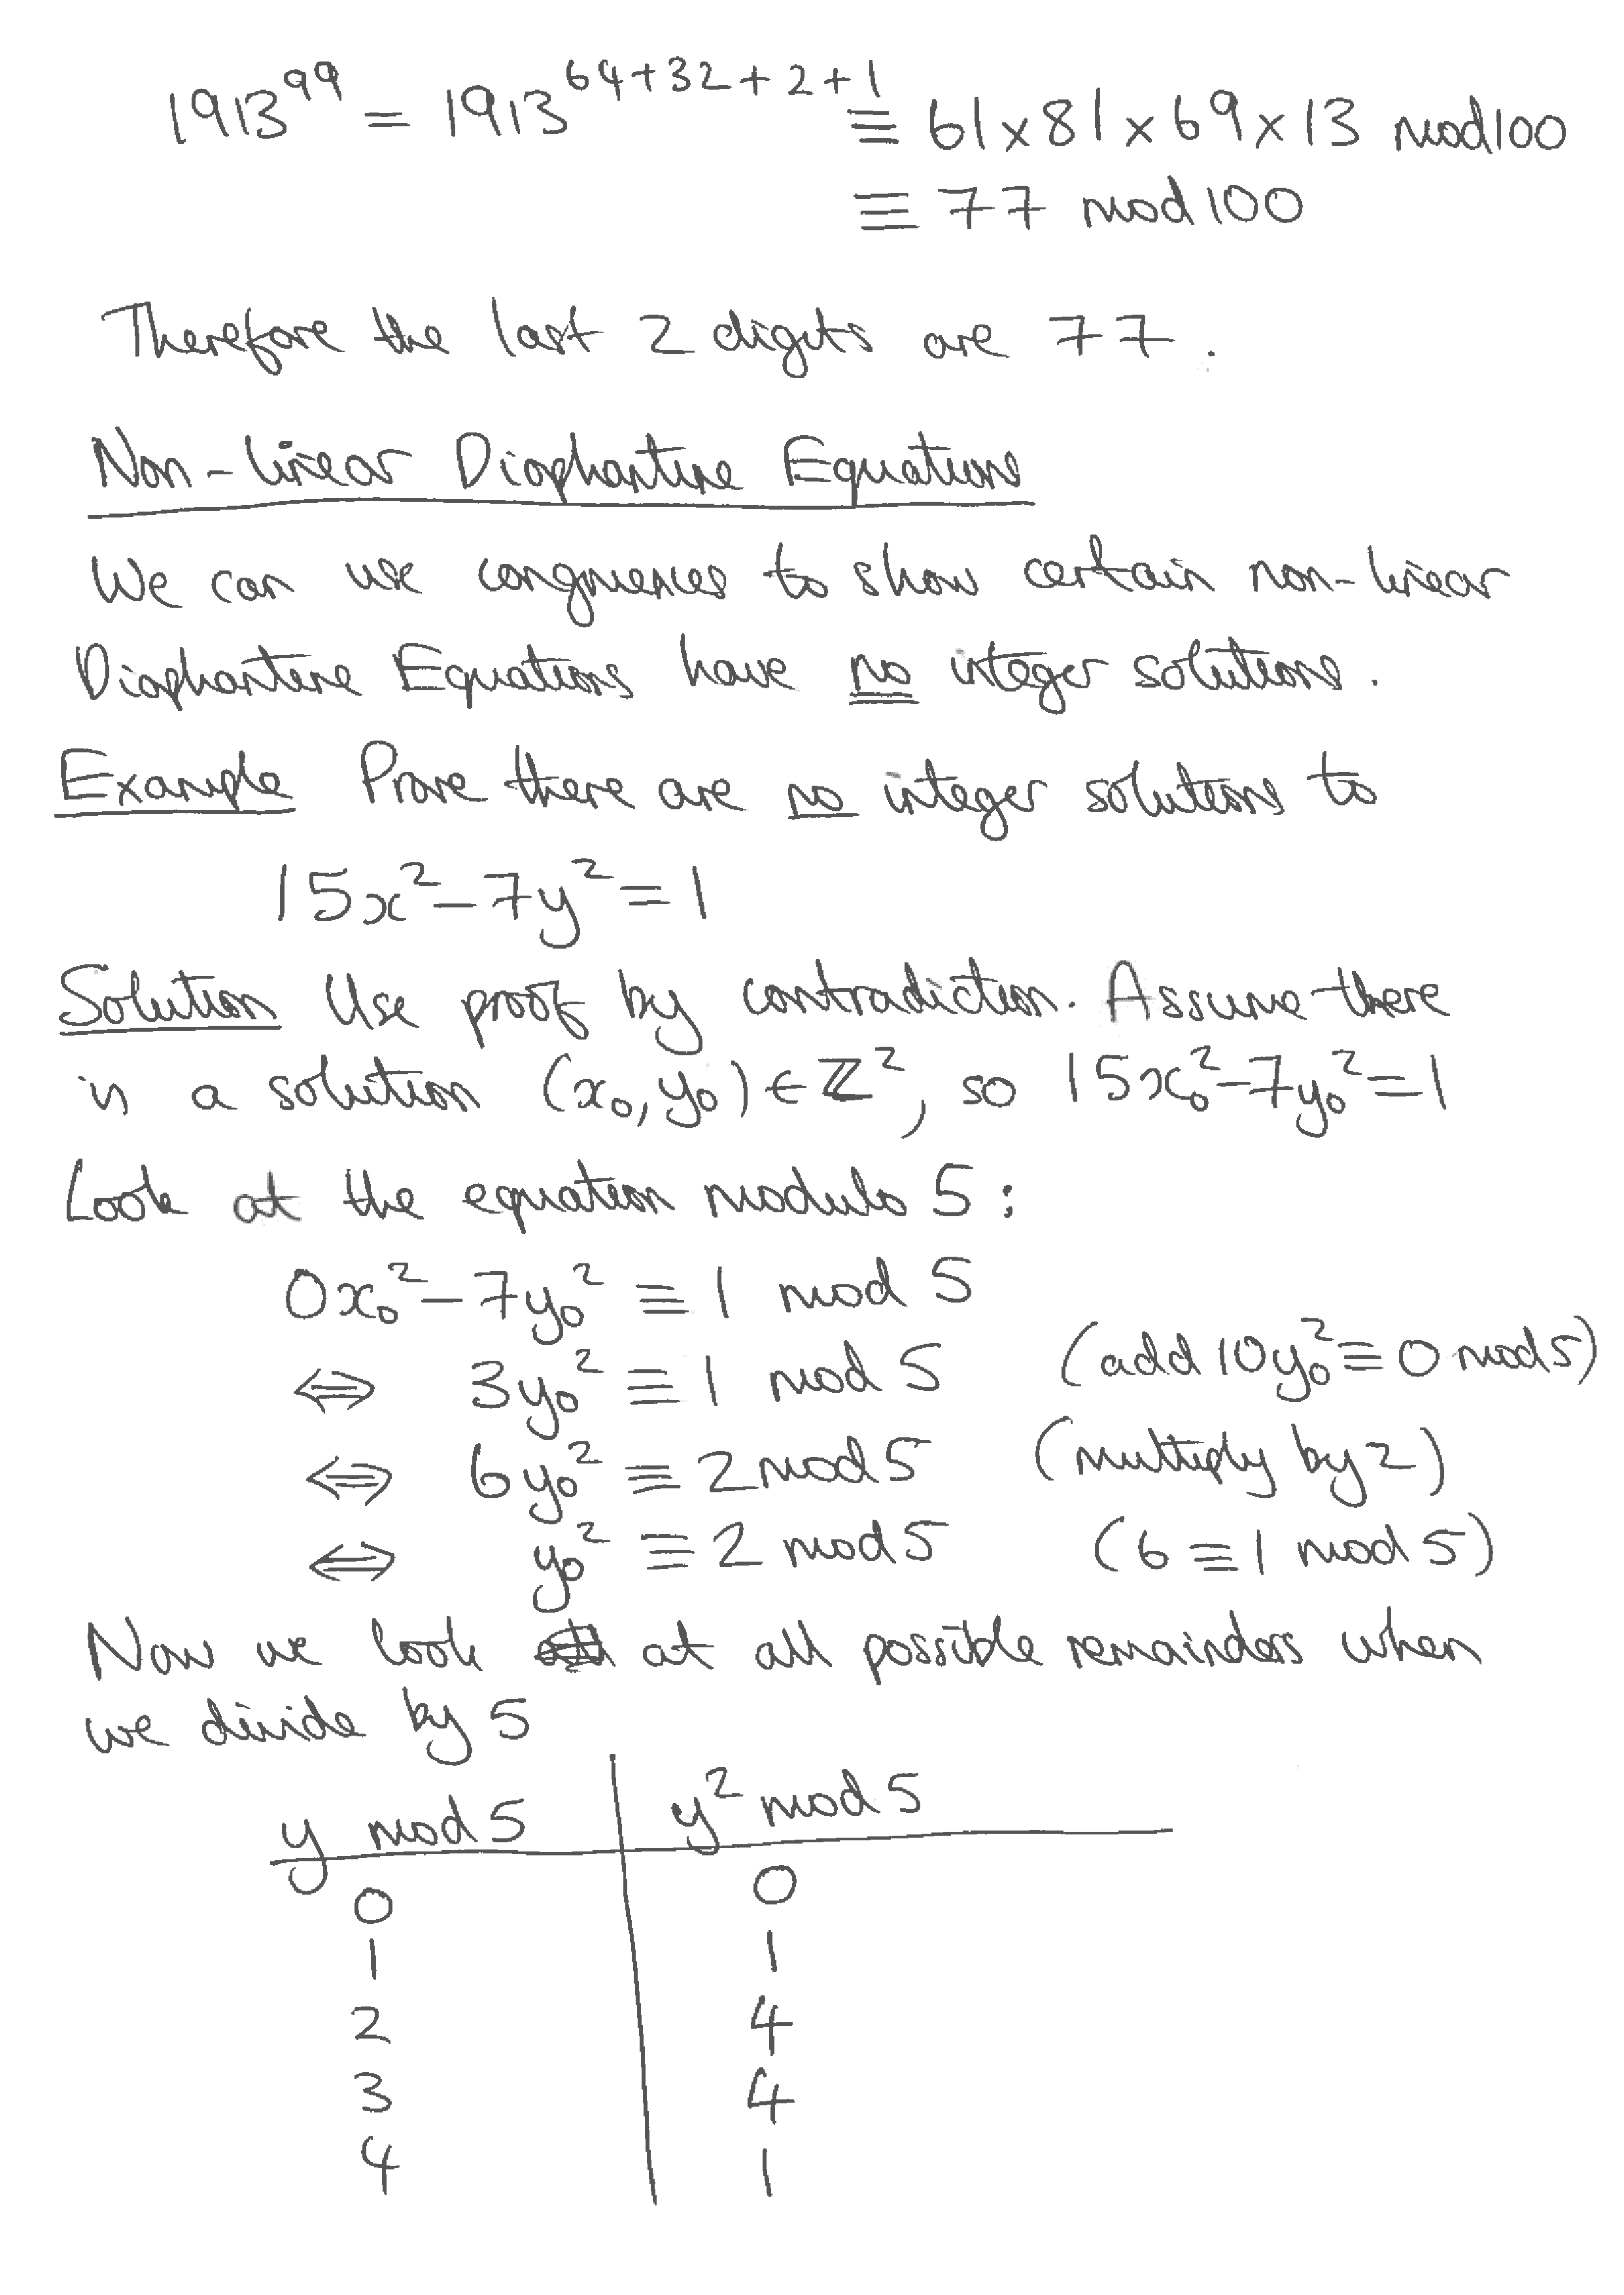 1913^99 = 1913^(64+32+2+1) ≡ 61×81×69×13 mod 100
≡ 77 mod 100
Therefore the last 2 digits are 77.
Non-linear Diophantine Equations
We can use congruences to show certain non-linear
Diophantine Equations have no integer solutions.
Example Prove there are no integer solutions to
15x² - 7y² = 1
Solution Use proof by contradiction. Assume there
is a solution (x₀, y₀) ∈ ℤ², so 15x₀² - 7y₀² = 1
Look at the equation modulo 5:
0x₀² - 7y₀² ≡ 1 mod 5
⇔ 3y₀² ≡ 1 mod 5 (add 10y₀² ≡ 0 mod 5)
⇔ 6y₀² ≡ 2 mod 5 (multiply by 2)
⇔ y₀² ≡ 2 mod 5 (6 ≡ 1 mod 5)
Now we look at all possible remainders when
we divide by 5
y mod 5 y² mod 5
0 0
1 1
2 4
3 4
4 1